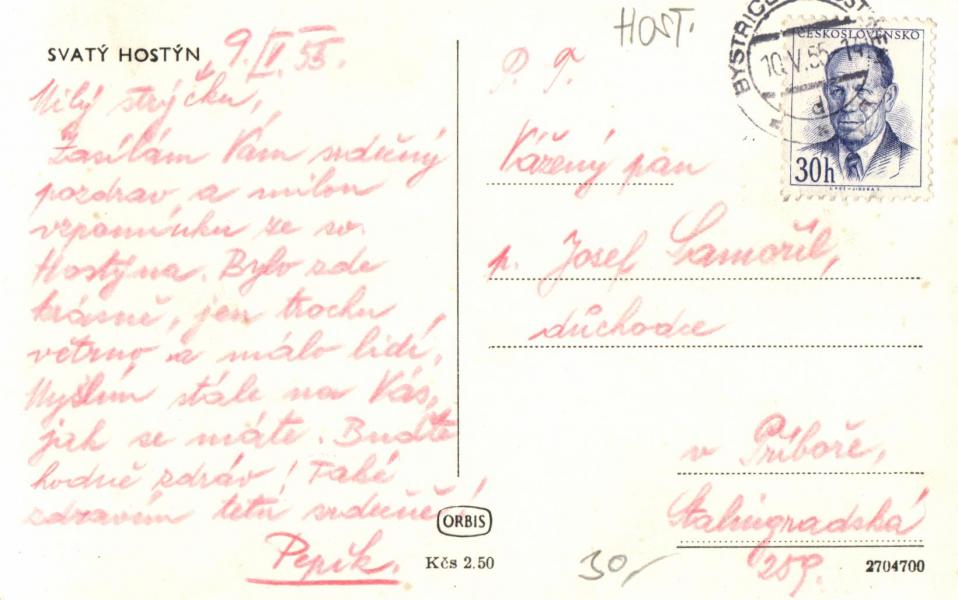 SVATÝ HOSTÝN 9./V. 55.
Milý strýčku,
Zasílám Vám srdečný
pozdrav a milou
vzpomínku ze sv.
Hostýna. Bylo zde
krásně, jen trochu
větrno a málo lidí.
Myslím stále na Vás,
jak se máte. Buďte
hodně zdráv! Také
zdravím tetu srdečně!
Pepík.
HOST.
P. T.
Vážený pan
p. Josef Samořil,
důchodce
v Příboře,
Stalingradská
259.
BYSTŘICE
10.V.55-14
d
ČESKOSLOVENSKO
30h
ORBIS
Kčs 2.50
30,-
2704700